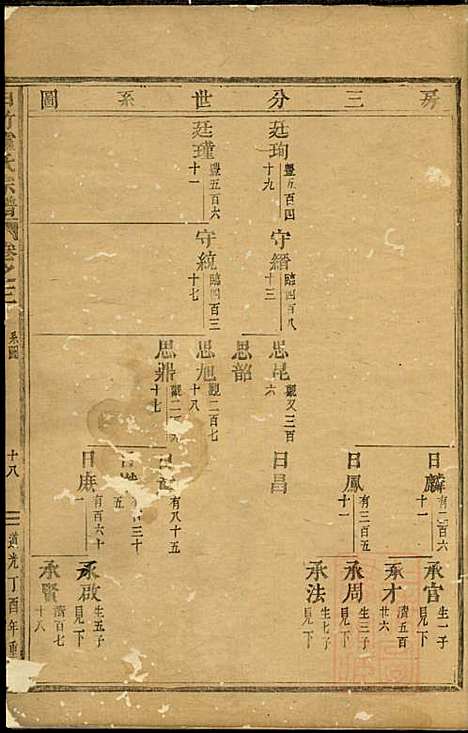 房三分世系圖
廷珣
豐五百四十九
廷瑾
豐五百六十一
守縉
臨四百八十三
守統
臨四百三十七
思昆
觀又三百六
思韶
思旭
觀二百七十八
思鼎
觀二百六十七
日麟
有二百六十一
日鳳
有三百五十一
日昌
有八十五
日庶
有百六十一
承官
生一子見下
承才
濟五百廿六
承周
生三子見下
承法
生七子見下
承啟
生五子見下
承賢
濟百七十八
氏宗譜
卷之二
系圖
十八
道光丁酉年重